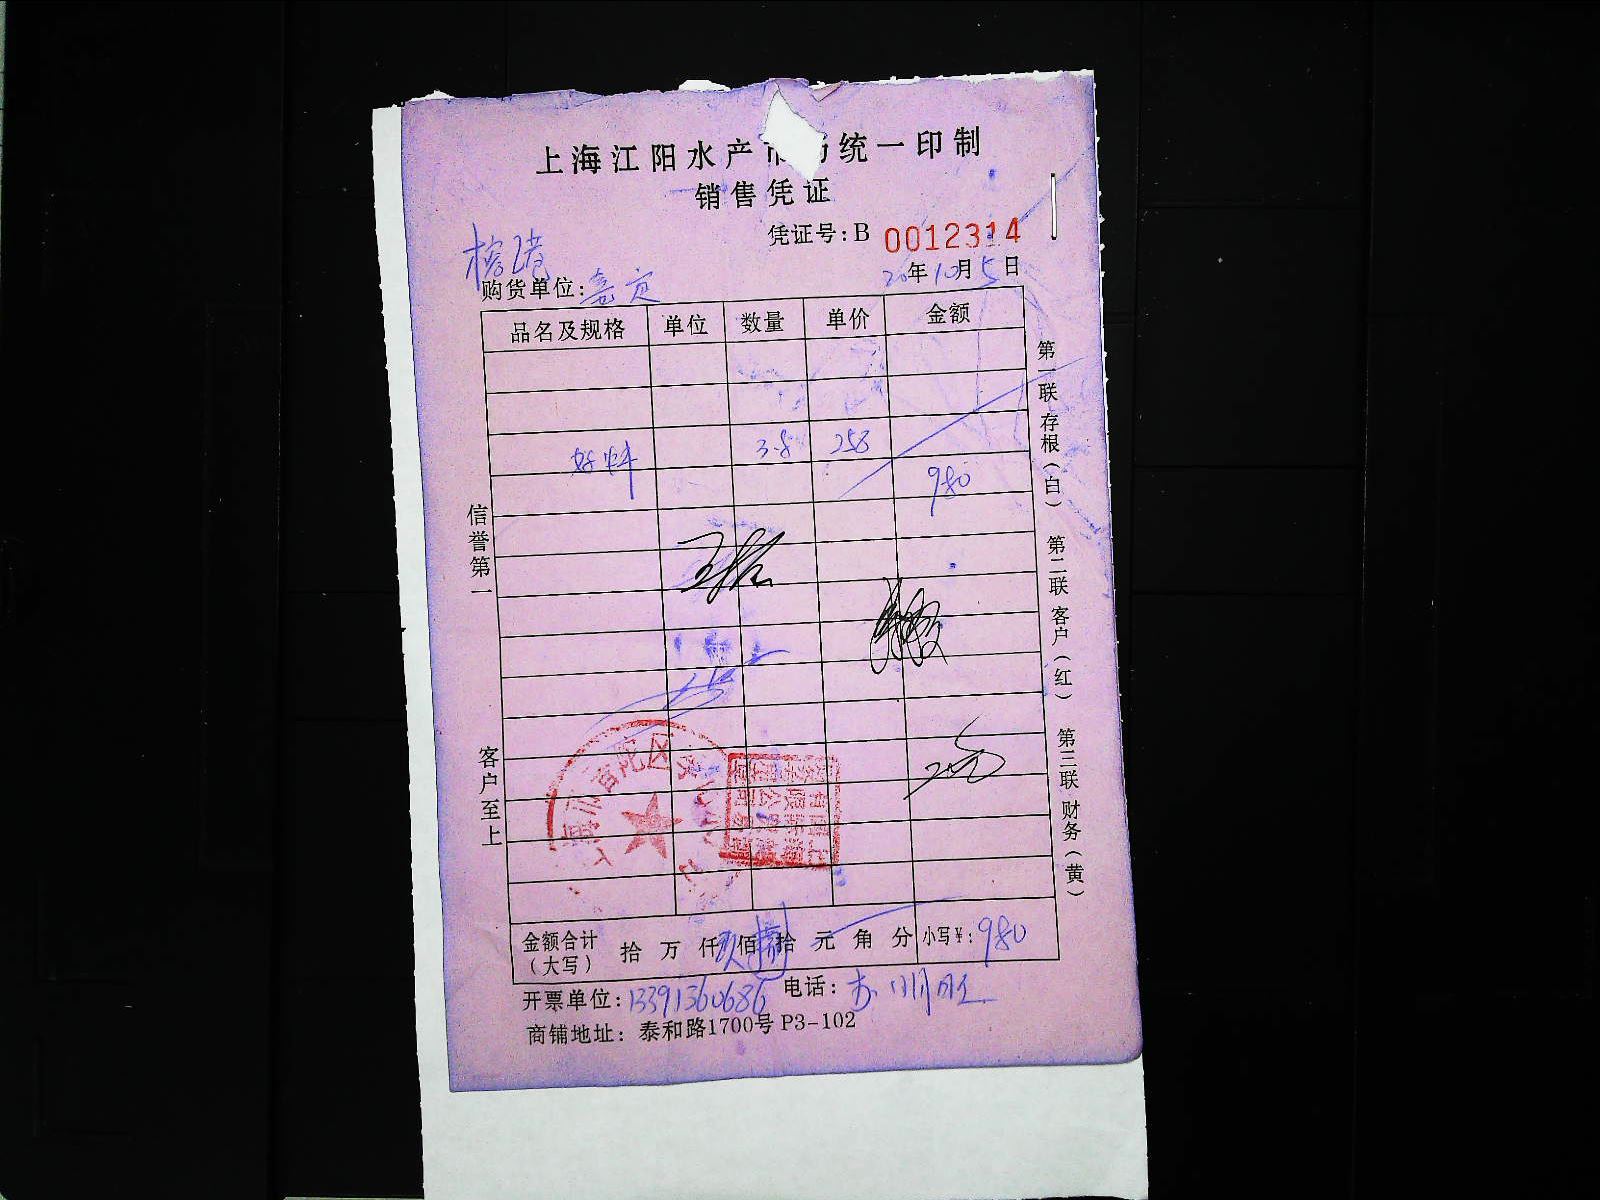 上海江阳水产市场统一印制
销售凭证
凭证号:B 0012314
榕港
购货单位:嘉定 20年10月5日
品名及规格 单位 数量 单价 金额
好料 3.8 258
980
信誉第一
客户至上
第一联存根(白) 第二联客户(红) 第三联财务(黄)
金额合计(大写) 拾 万 仟 玖佰 捌拾 元 角 分 小写¥:980
开票单位:13391360686 电话:
商铺地址:泰和路1700号 P3-102